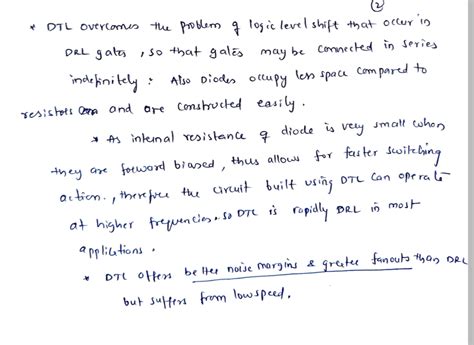 (2)
* DTL overcomes the problem of logic level shift that occur in
DRL gates, so that gates may be connected in series
indefinitely : Also Diodes occupy less space compared to
resistors and are constructed easily.
* As internal resistance of diode is very small when
they are forward biased, thus allows for faster switching
action., therefore the circuit built using DTL can operate
at higher frequencies. so DTL is rapidly DRL in most
applictions.
* DTL offers better noise margins & greater fanouts than DRL
but suffers from low speed.